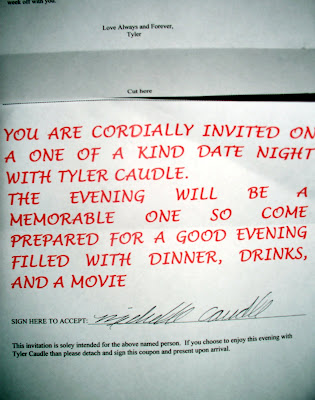 week off with you.
Love Always and Forever,
Tyler
Cut here
YOU ARE CORDIALLY INVITED ON
A ONE OF A KIND DATE NIGHT
WITH TYLER CAUDLE.
THE EVENING WILL BE A
MEMORABLE ONE SO COME
PREPARED FOR A GOOD EVENING
FILLED WITH DINNER, DRINKS,
AND A MOVIE
SIGN HERE TO ACCEPT: Michelle Caudle
This invitation is soley intended for the above named person. If you choose to enjoy this evening with
Tyler Caudle than please detach and sign this coupon and present upon arrival.